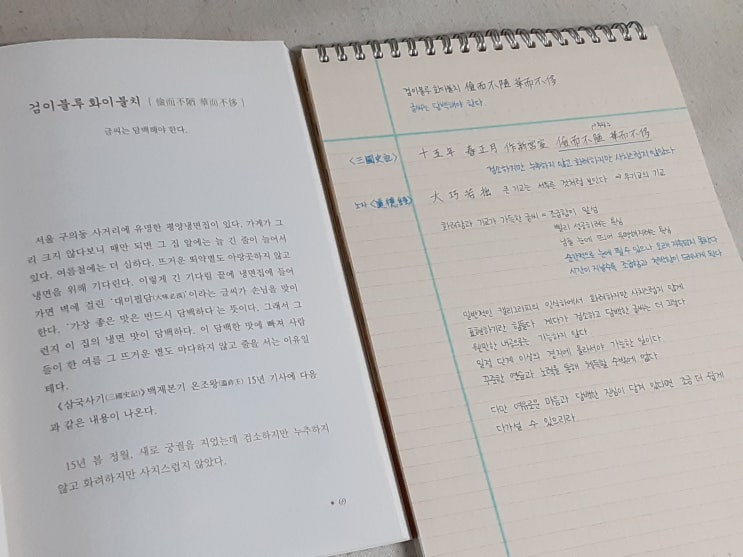 검이불루 화이불치 [ 儉而不陋 華而不侈 ]
글씨는 담백해야 한다.
서울 구의동 사거리에 유명한 평양냉면집이 있다. 가게가 그
리 크지 않다보니 때만 되면 그 집 앞에는 늘 긴 줄이 늘어서
있다. 여름철에는 더 심하다. 뜨거운 뙤약볕도 아랑곳하지 않고
냉면을 위해 기다린다. 이렇게 긴 기다림 끝에 냉면집에 들어
가면 벽에 걸린 '대미필담(大味必淡)'이라는 글씨가 손님을 맞이
한다. '가장 좋은 맛은 반드시 담백하다'는 뜻이다. 그래서 그
런지 이 집의 냉면 맛이 담백하다. 이 담백한 맛에 빠져 사람
들이 한 여름 그 뜨거운 볕도 마다하지 않고 줄을 서는 이유일
테다.
《삼국사기(三國史記)》 백제본기 온조왕(溫祚王) 15년 기사에 다음
과 같은 내용이 나온다.
15년 봄 정월, 새로 궁궐을 지었는데 검소하지만 누추하지
않고 화려하지만 사치스럽지 않았다.
69
검이불루 화이불치 儉而不陋 華而不侈
글씨는 담백해야 한다.
<三國史記> 十五年 春正月 作新宮室 儉而不陋 華而不侈
검소하지만 누추하지 않고 화려하지만 사치스럽지 않았다
노자 <道德經> 大巧若拙 큰 기교는 서투른 것처럼 보인다 무기교의 기교
화려함과 기교가 가득한 글씨 = 조급함이 앞섬
빨리 성공하려는 욕심
남들 눈에 띄어 유명해지려는 욕심
순간적으로 눈에 띌 수 있으나 오래 지속되지 못한다
시간이 지날수록 조급함과 천박함이 드러나게 된다
일반적인 캘리그라피의 인식하에서 화려하지만 사치스럽지 않게
표현하기란 힘들다 게다가 검소하고 담백한 글씨는 더 그렇다
웬만한 내공으로는 가능하지 않다
일정 단계 이상의 경지에 올라서야 가능한 일이다
꾸준한 연습과 노력을 통해 체득될 수밖에 없다
다만 여유로운 마음과 담백한 진심이 담겨 있다면 조금 더 쉽게
다가설 수 있으리라